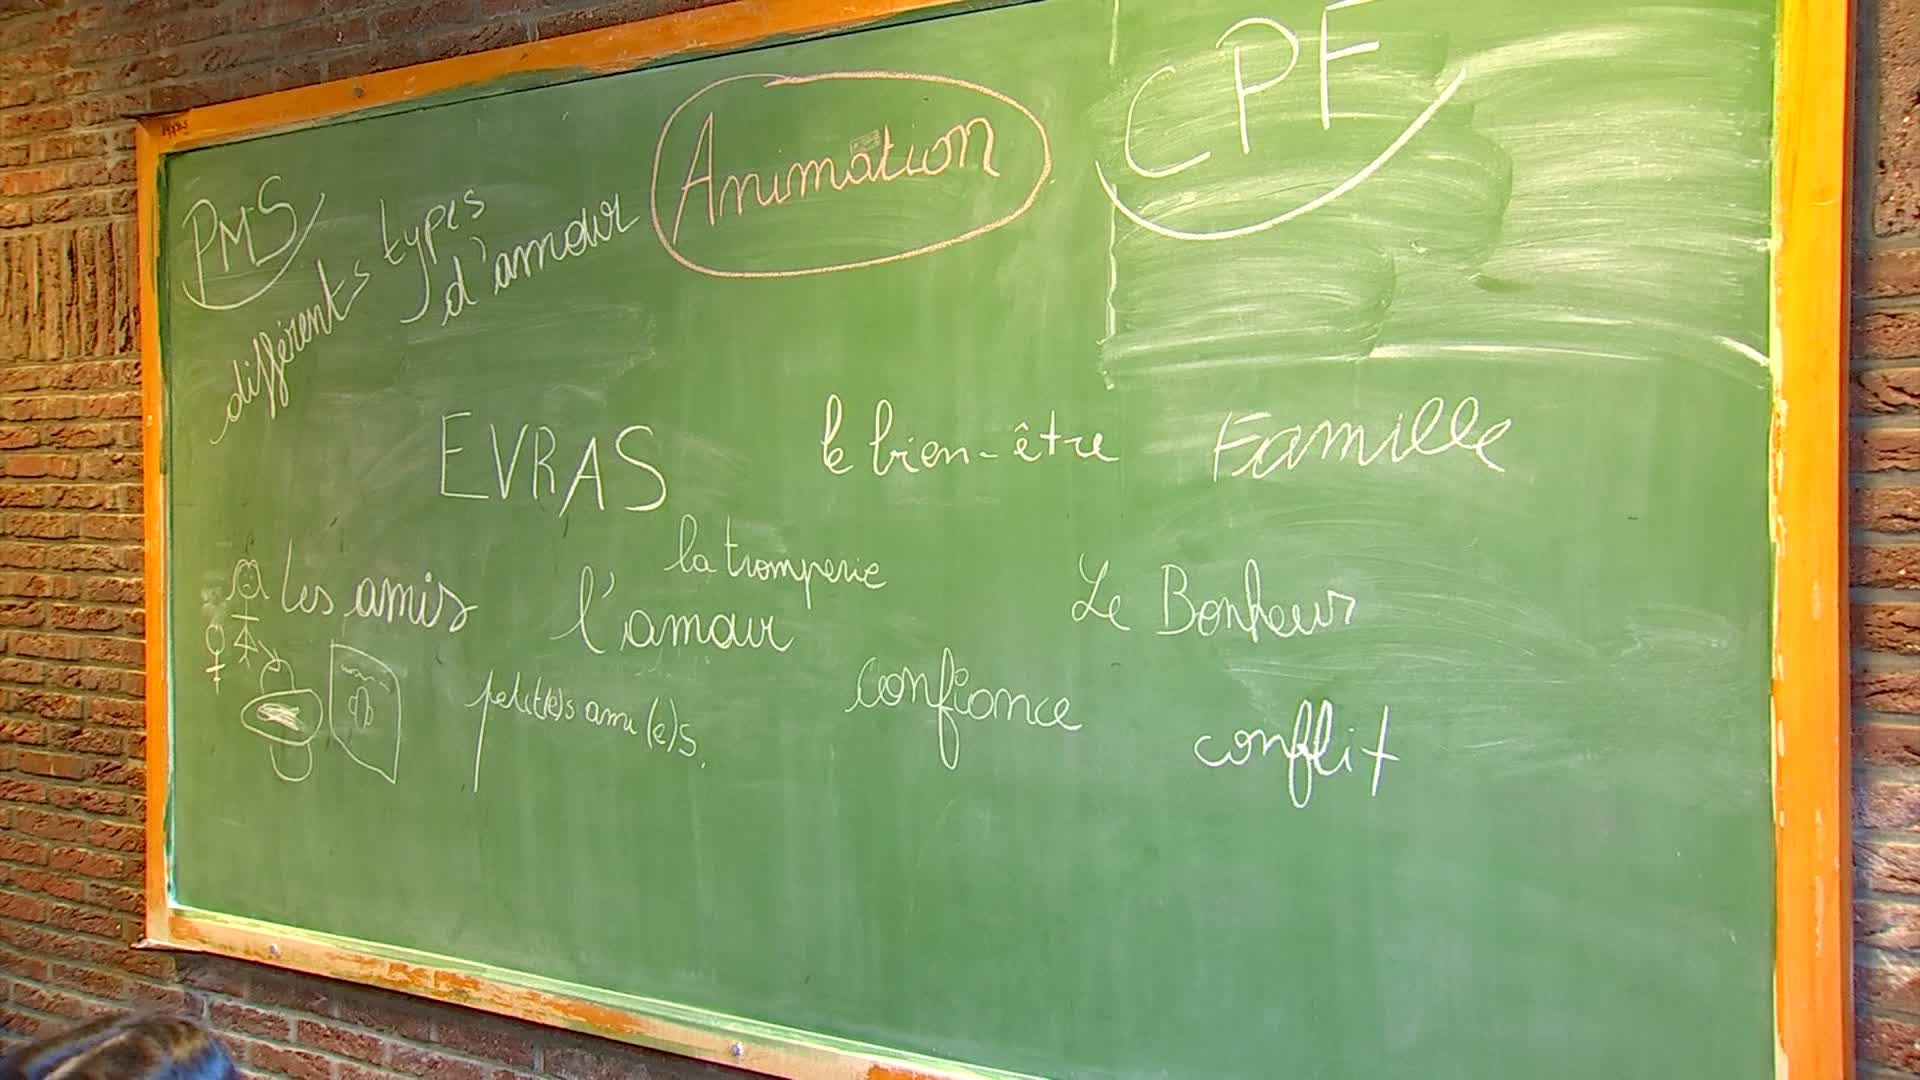 PMS
Animation
CPF
différents types d'amour
EVRAS
le bien-être
Famille
la tromperie
les amis
l'amour
Le Bonheur
petit(e)s ami(e)s.
confiance
conflit